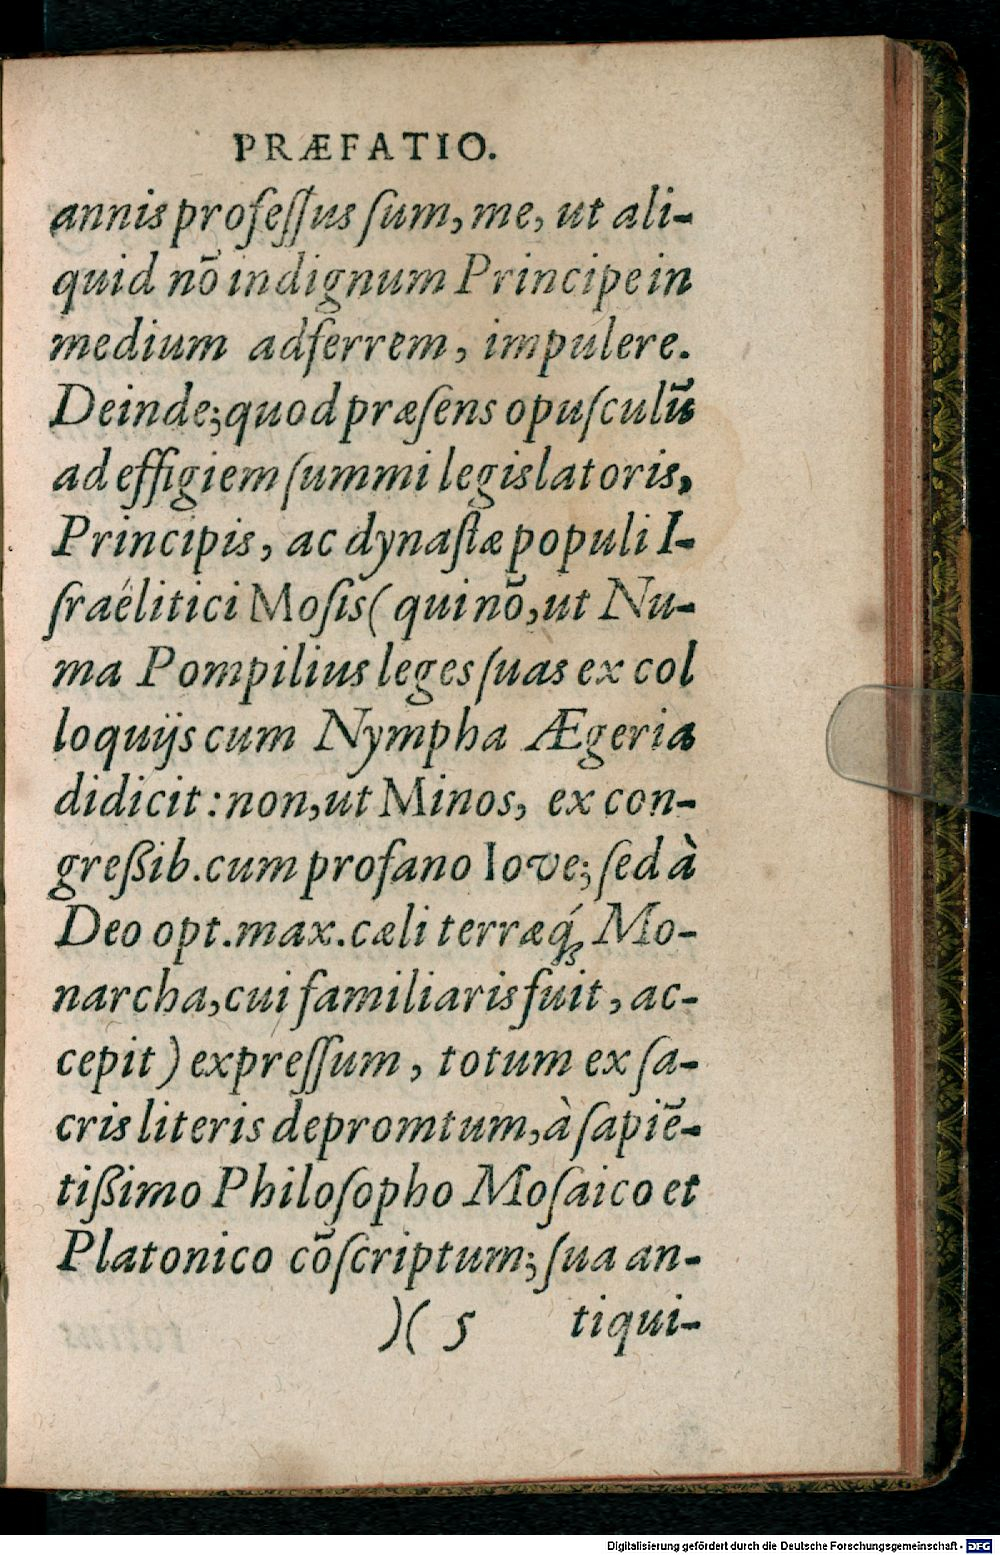 PRÆFATIO.
annis profeſſus ſum, me, ut ali-
quid nō indignum Principe in
medium adferrem, impulere.
Deinde; quod præſens opuſculū
ad effigiem ſummi legislatoris,
Principis, ac dynaſtæ populi I-
ſraëlitici Moſis( qui nō, ut Nu-
ma Pompilius leges ſuas ex col
loquijs cum Nympha Ægeria
didicit: non, ut Minos, ex con-
greßib. cum profano Iove; ſed à
Deo opt. max. cæli terræq́; Mo-
narcha, cui familiaris fuit, ac-
cepit) expreſſum, totum ex ſa-
cris literis depromtum, à ſapiē-
tißimo Philoſopho Moſaico et
Platonico cōſcriptum; ſua an-
)( 5 tiqui-
Digitalisierung gefördert durch die Deutsche Forschungsgemeinschaft - DFG